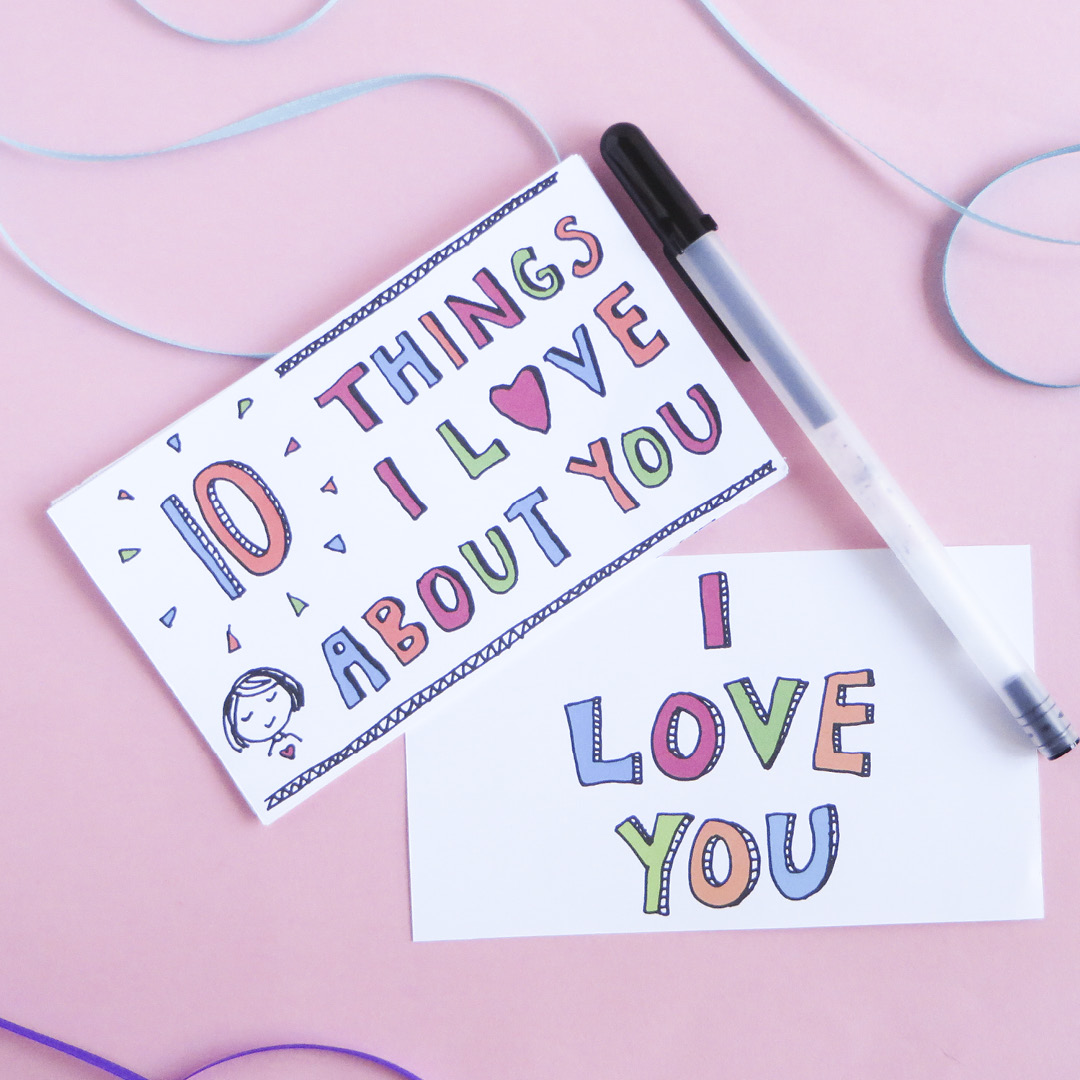 10 THINGS
I L♥VE
ABOUT YOU
I
LOVE
YOU